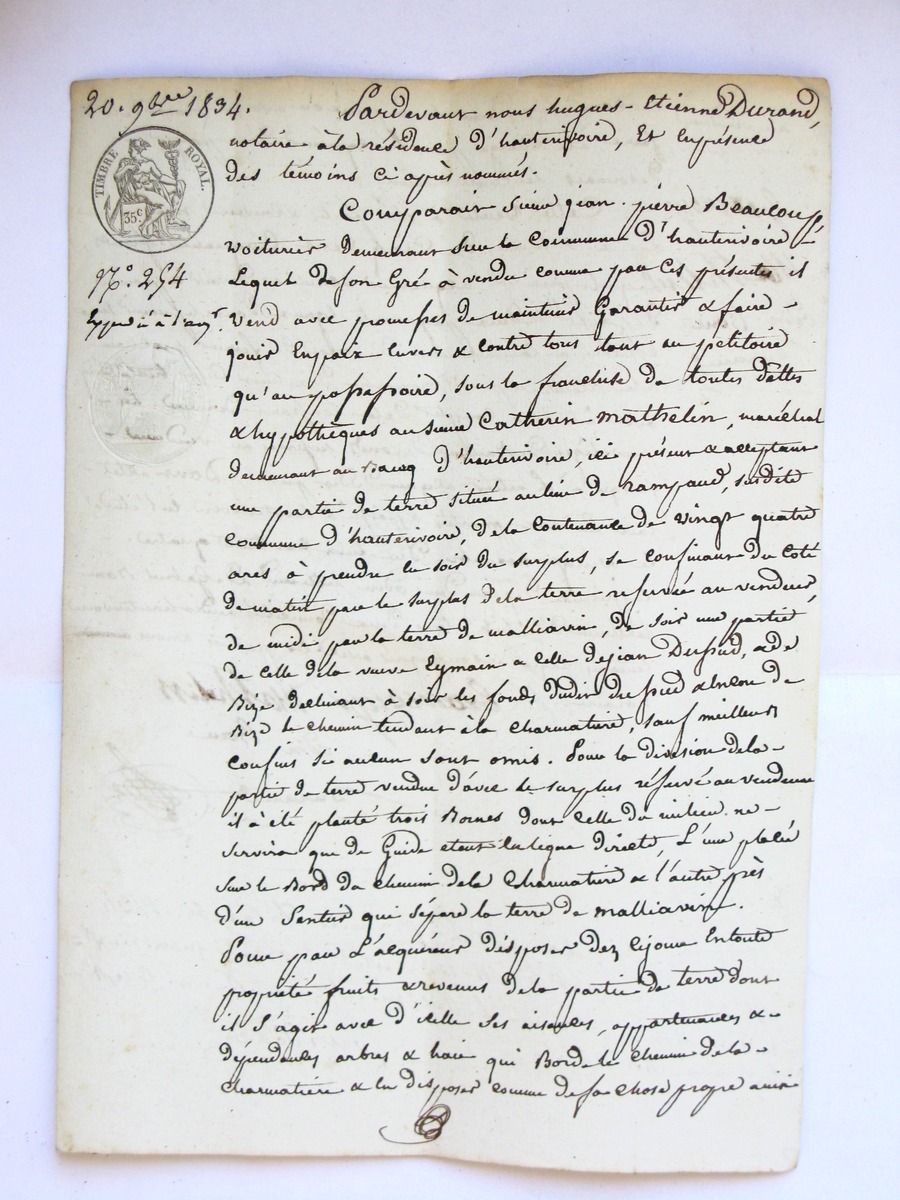 20. 9bre 1834.
TIMBRE ROYAL.
35c
N°. 254
Expédié à l'acqr.
Pardevant nous hugues-Etienne Durand,
notaire à la résidence d'hauterivoire, Et en présence
des témoins ci après nommés.
Comparait sieur jean-pierre Beauloup,
voiturier demeurant sur la Commune d'hauterivoire -
Lequel de son Gré à vendu comme par Ces présentes il
vend avec promesses de maintenir Garantir & faire -
jouir En paix Envers & contre tous tant au pétitoire
qu'au possessoire, sous la franchise de toutes dettes
& hypothèques au sieur Catherin mathelin, maréchal
demeurant au Bourg d'hauterivoire, ici présent & acceptant
une partie de terre située au lieu de rampaud, susdite
commune d'hauterivoire, de la Contenance de vingt quatre
ares à prendre en soir du surplus, se confinant du Coté
de matin par le surplus de la terre reservée au vendeur,
de midi par la terre de malliavin, de soir une partie
de Celle de la veuve Eymain & Celle de jean Dupud, & de
Bize déclinant à soir les fonds dudit dupud & Encore de
Bize le chemin tendant à la charmatière, sauf meilleurs
confins si aucun sont omis. Pour la division de la -
partie de terre vendue d'avec le surplus réservé au vendeur
il à été planté trois Bornes dont Celle du milieu ne -
servira que de Guide étant en ligne directe, L'une placée
sur le Bord du chemin de la Charmatière & l'autre près
d'un Sentier qui sépare la terre de malliavin.
Pour par L'acquéreur disposer dez cejour En toute
propriété fruits & revenus de la partie de terre dont
il s'agit avec d'icelle ses aisances, appartenances & -
dépendances arbres & haie qui Borde le chemin de la -
charmatière & En disposer comme de sa chose propre ainsi